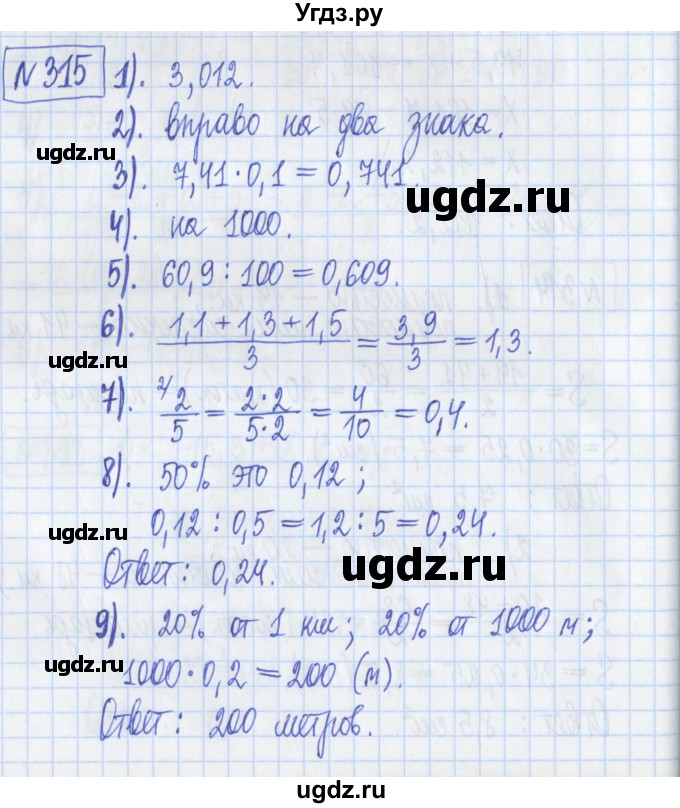 Угдз.ру
№ 315 1). 3,012.
2). вправо на два знака.
ugdz.ru
3). 7,41 · 0,1 = 0,741.
ugdz.ru
4). на 1000.
5). 60,9 : 100 = 0,609.
6). (1,1 + 1,3 + 1,5)/3 = 3,9/3 = 1,3.
ugdz.ru
7). 2/ 2/5 = (2·2)/(5·2) = 4/10 = 0,4.
8). 50% это 0,12;
0,12 : 0,5 = 1,2 : 5 = 0,24.
ugdz.ru
Ответ: 0,24.
ugdz.ru
9). 20% от 1 км; 20% от 1000 м;
ugdz.ru
1000 · 0,2 = 200 (м).
Ответ: 200 метров.
ugdz.ru